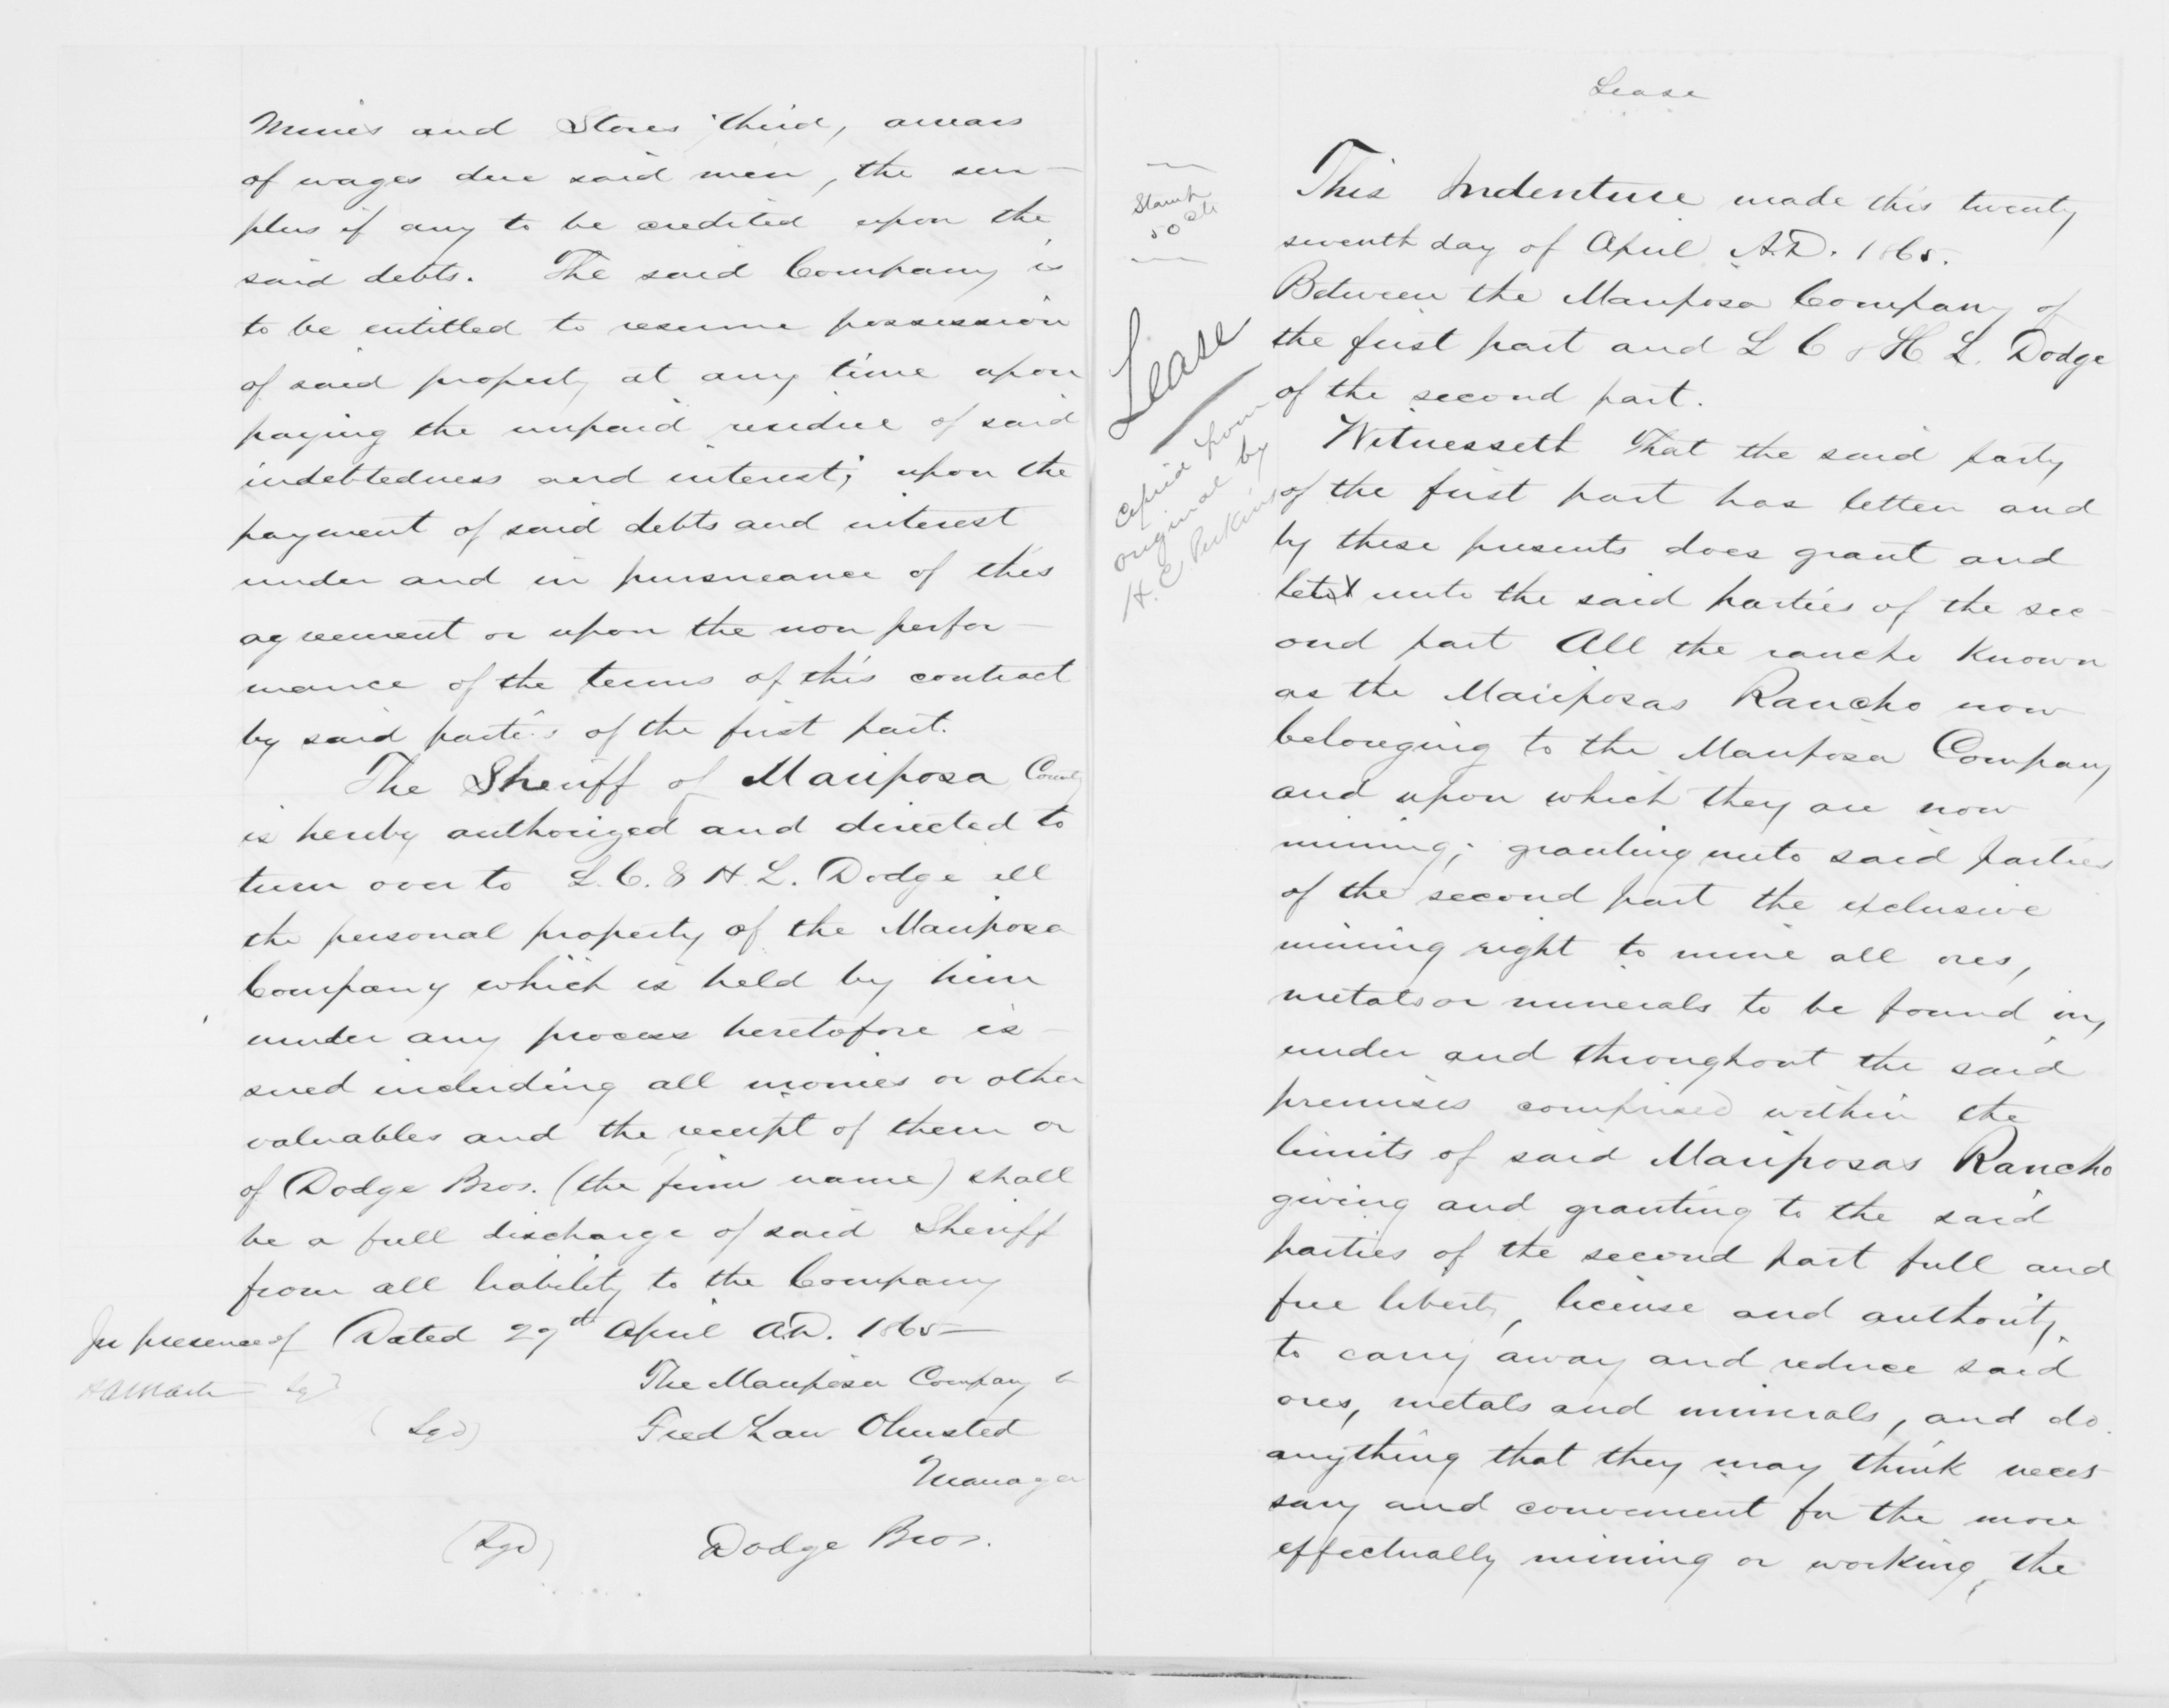 Mines and Stores third, arrears
of wages due said men, the sur-
plus if any to be credited upon the
said debts. The said Company is
to be entitled to resume possession
of said property at any time upon
paying the unpaid residue of said
indebtedness and interest; upon the
payment of said debts and interest
under and in pursueance of this
agreement or upon the non perfor-
mance of the terms of this contract
by said parties of the first part.
The Sheriff of Mariposa County
is hereby authorized and directed to
turn over to L. C. & H. L. Dodge all
the personal property of the Mariposa
Company which is held by him
under any process heretofore is-
sued including all monies or other
valuables and the receipt of them or
of Dodge Bros. (the firm name) shall
be a full discharge of said Sheriff
from all liability to the Company
In presence of Dated 27th April A.D. 1865-
The Mariposa Company
(Sgd) Fred Law Olmsted
Manager
(Sgd) Dodge Bros.
Lease
Stamp
50 cts
Lease
Copied from
original by
H. C. Perkins
This Indenture made this twenty
seventh day of April A.D. 1865.
Between the Mariposa Company of
the first part and L C & H L. Dodge
of the second part.
Witnesseth That the said party
of the first part has letten and
by these presents does grant and
let unto the said parties of the sec-
ond part All the rancho Known
as the Mariposas Rancho now
belonging to the Mariposa Company
and upon which they are now
mining; granting unto said parties
of the second part the exclusive
mining right to mine all ores,
metals or minerals to be found in,
under and throughout the said
premises comprised within the
limits of said Mariposas Rancho
giving and granting to the said
parties of the second part full and
free liberty, license and authority,
to carry away and reduce said
ores, metals and minerals, and do
anything that they may think neces-
sary and convenient for the more
effectually mining or working, the